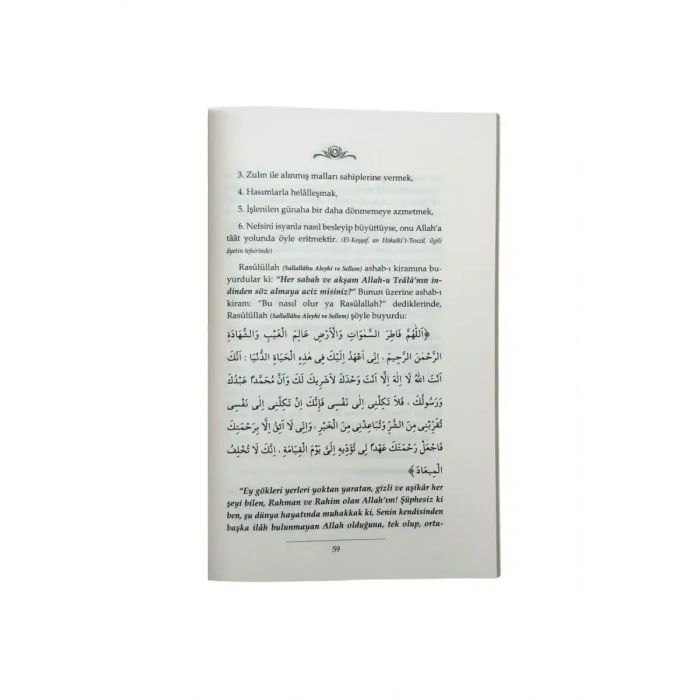 3. Zulm ile alınmış malları sahiplerine vermek,
4. Hasımlarla helâlleşmak,
5. İşlenilen günaha bir daha dönmemeye azmetmek,
6. Nefsini isyanla nasıl besleyip büyüttüyse, onu Allah'a
tâât yolunda öyle eritmektir. (El-Keşşaf, an Hakaiki't-Tenzil, ilgili
âyetin tefsirinde)
Rasûlüllah (Sallallâhu Aleyhi ve Sellem) ashab-ı kiramına bu-
yurdular ki: "Her sabah ve akşam Allah-u Teâlâ'nın in-
dinden söz almaya aciz misiniz?" Bunun üzerine ashab-ı
kiram: "Bu nasıl olur ya Rasûlallah?" dediklerinde,
Rasûlüllah (Sallallâhu Aleyhi ve Sellem) şöyle buyurdu:
﴿اَللّٰهُمَّ فَاطِرَ السَّمٰوَاتِ وَالْاَرْضِ عَالِمَ الْغَيْبِ وَالشَّهَادَةِ
الرَّحْمٰنَ الرَّحِيمَ ، اِنِّى اَعْهَدُ اِلَيْكَ فِى هٰذِهِ الْحَيَاةِ الدُّنْيَا : اَنَّكَ
اَنْتَ اللّٰهُ لَا اِلٰهَ اِلَّا اَنْتَ وَحْدَكَ لَاشَرِيكَ لَكَ وَاَنَّ مُحَمَّدًا عَبْدُكَ
وَرَسُولُكَ ، فَلَا تَكِلْنِى اِلٰى نَفْسِى فَاِنَّكَ اِنْ تَكِلْنِى اِلٰى نَفْسِى
تُقَرِّبْنِى مِنَ الشَّرِّ وَتُبَاعِدْنِى مِنَ الْخَيْرِ ، وَاِنِّى لَا اَثِقُ اِلَّا بِرَحْمَتِكَ
فَاجْعَلْ رَحْمَتَكَ عَهْدًا لِى تُؤَدِّيهِ اِلٰىَّ يَوْمَ الْقِيَامَةِ ، اِنَّكَ لَا تُخْلِفُ
الْمِيعَادَ﴾
"Ey gökleri yerleri yoktan yaratan, gizli ve aşikâr her
şeyi bilen, Rahman ve Rahim olan Allah'ım! Şüphesiz ki
ben, şu dünya hayatında muhakkak ki, Senin kendisinden
başka ilâh bulunmayan Allah olduğuna, tek olup, orta-
59